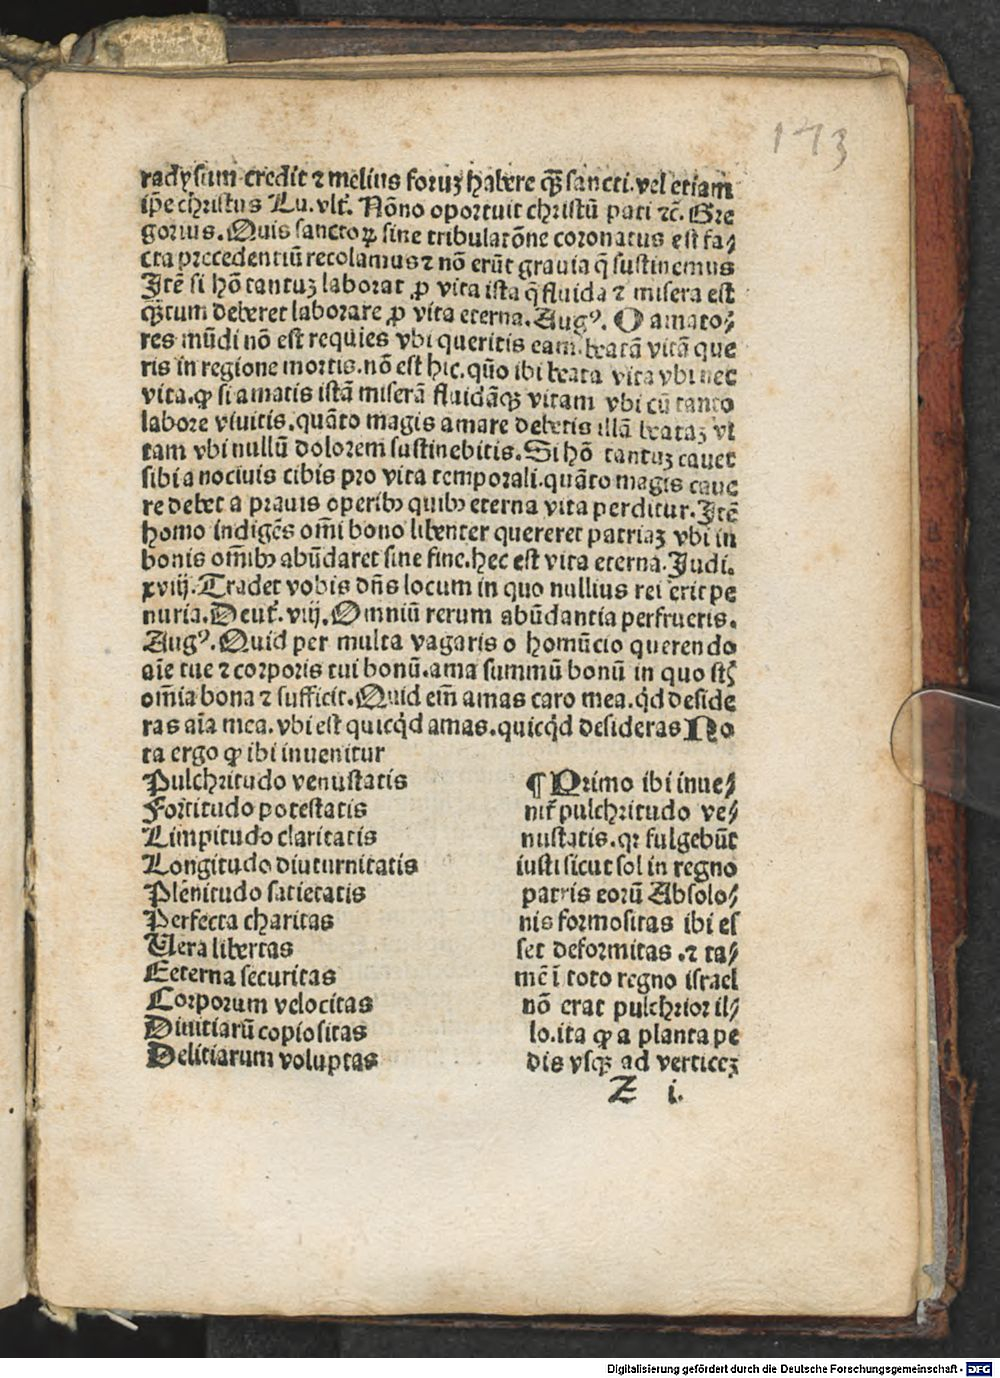 173
radysum credit ⁊ melius foruʒ habere qͣ̄ sancti. vel etiam
ip̄e christus Lu. vlt̄. Nōno oportuit christū pati ⁊c̄. Gre
gorius. Quis sanctoꝝ sine tribulatōne coronatus est fa⸗
cta precedentiū recolamus ⁊ nō erūt grauia q̄ sustinemus
Itē si hō tantuʒ laborat ꝓ vita ista q̄ fluida ⁊ misera est
qͣ̄tum deberet laborare ꝓ vita eterna. Augꝰ. O amato⸗
res mūdi nō est requies vbi queritis eam. beatā vitā que
ris in regione mortis. nō est hic. quō ibi beata vita vbi nec
vita. ꝙ si amatis istā miserā fluidāqꝫ vitam vbi cū tanto
labore viuitis. quāto magis amare debetis illā beataʒ vi
tam vbi nullū dolorem sustinebitis. Si hō tantuʒ cauet
sibi a nociuis cibis pro vita temporali. quāto magis caue
re debet a prauis operibꝰ quibꝰ eterna vita perditur. Itē
homo indigēs om̄i bono libenter quereret patriaʒ vbi in
bonis om̄ibꝰ abūdaret sine fine. hec est vita eterna. Judi.
xviij. Tradet vobis dn̄s locum in quo nullius rei erit pe
nuria. Deut̄. viij. Omniū rerum abūdantia perfrueris.
Augꝰ. Quid per multa vagaris o homūcio querendo
aīe tue ⁊ corporis tui bonū. ama summū bonū in quo st̄
om̄ia bona ⁊ sufficit. Quid em̄ amas caro mea. qd̄ deside
ras aīa mea. vbi est quicqd̄ amas. quicqd̄ desideras No
ta ergo ꝙ ibi inuenitur
Pulchritudo venustatis
Fortitudo potestatis
Limpitudo claritatis
Longitudo diuturnitatis
Plenitudo satietatis
Perfecta charitas
Uera libertas
Eeterna securitas
Corporum velocitas
Diuitiarū copiositas
Delitiarum voluptas
¶ Primo ibi inue⸗
nit̄ pulchritudo ve⸗
nustatis. qꝛ fulgebūt
iusti sicut sol in regno
patris eorū Absolo⸗
nis formositas ibi es
set deformitas. ⁊ ta⸗
mē ī toto regno israel
nō erat pulchrior il⸗
lo. ita ꝙ a planta pe
dis vsqꝫ ad verticeʒ
Z i.
Digitalisierung gefördert durch die Deutsche Forschungsgemeinschaft - DFG